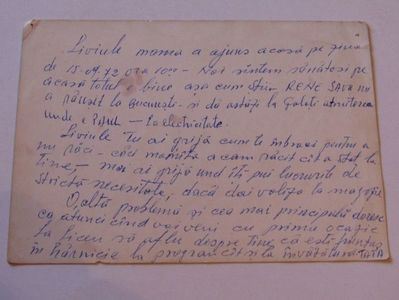 Liviule mama a ajuns acasă pe ziua
de 15.09.72 ora 10 - Noi sîntem sănătoși pe
acasă totul bine așa cum știu RENE SAVA nu
a răușit la București și dă astăzi la Galați
unde e - la electricitate.
Liviule Tu ai grijă cum te îmbraci pentru a
nu răci - căci mămica a cam răcit cît a stat la
tine - mai ai grijă und îți pui lucrurile de
strictă necesitate, dacă dai valiza la magazie
O altă problemă și cea mai principală doresc
ca atunci cînd voi veni cu prima ocazie
la liceu să aflu despre tine că ești fruntaș
în hărnicie la program cît și la învățătură TATA